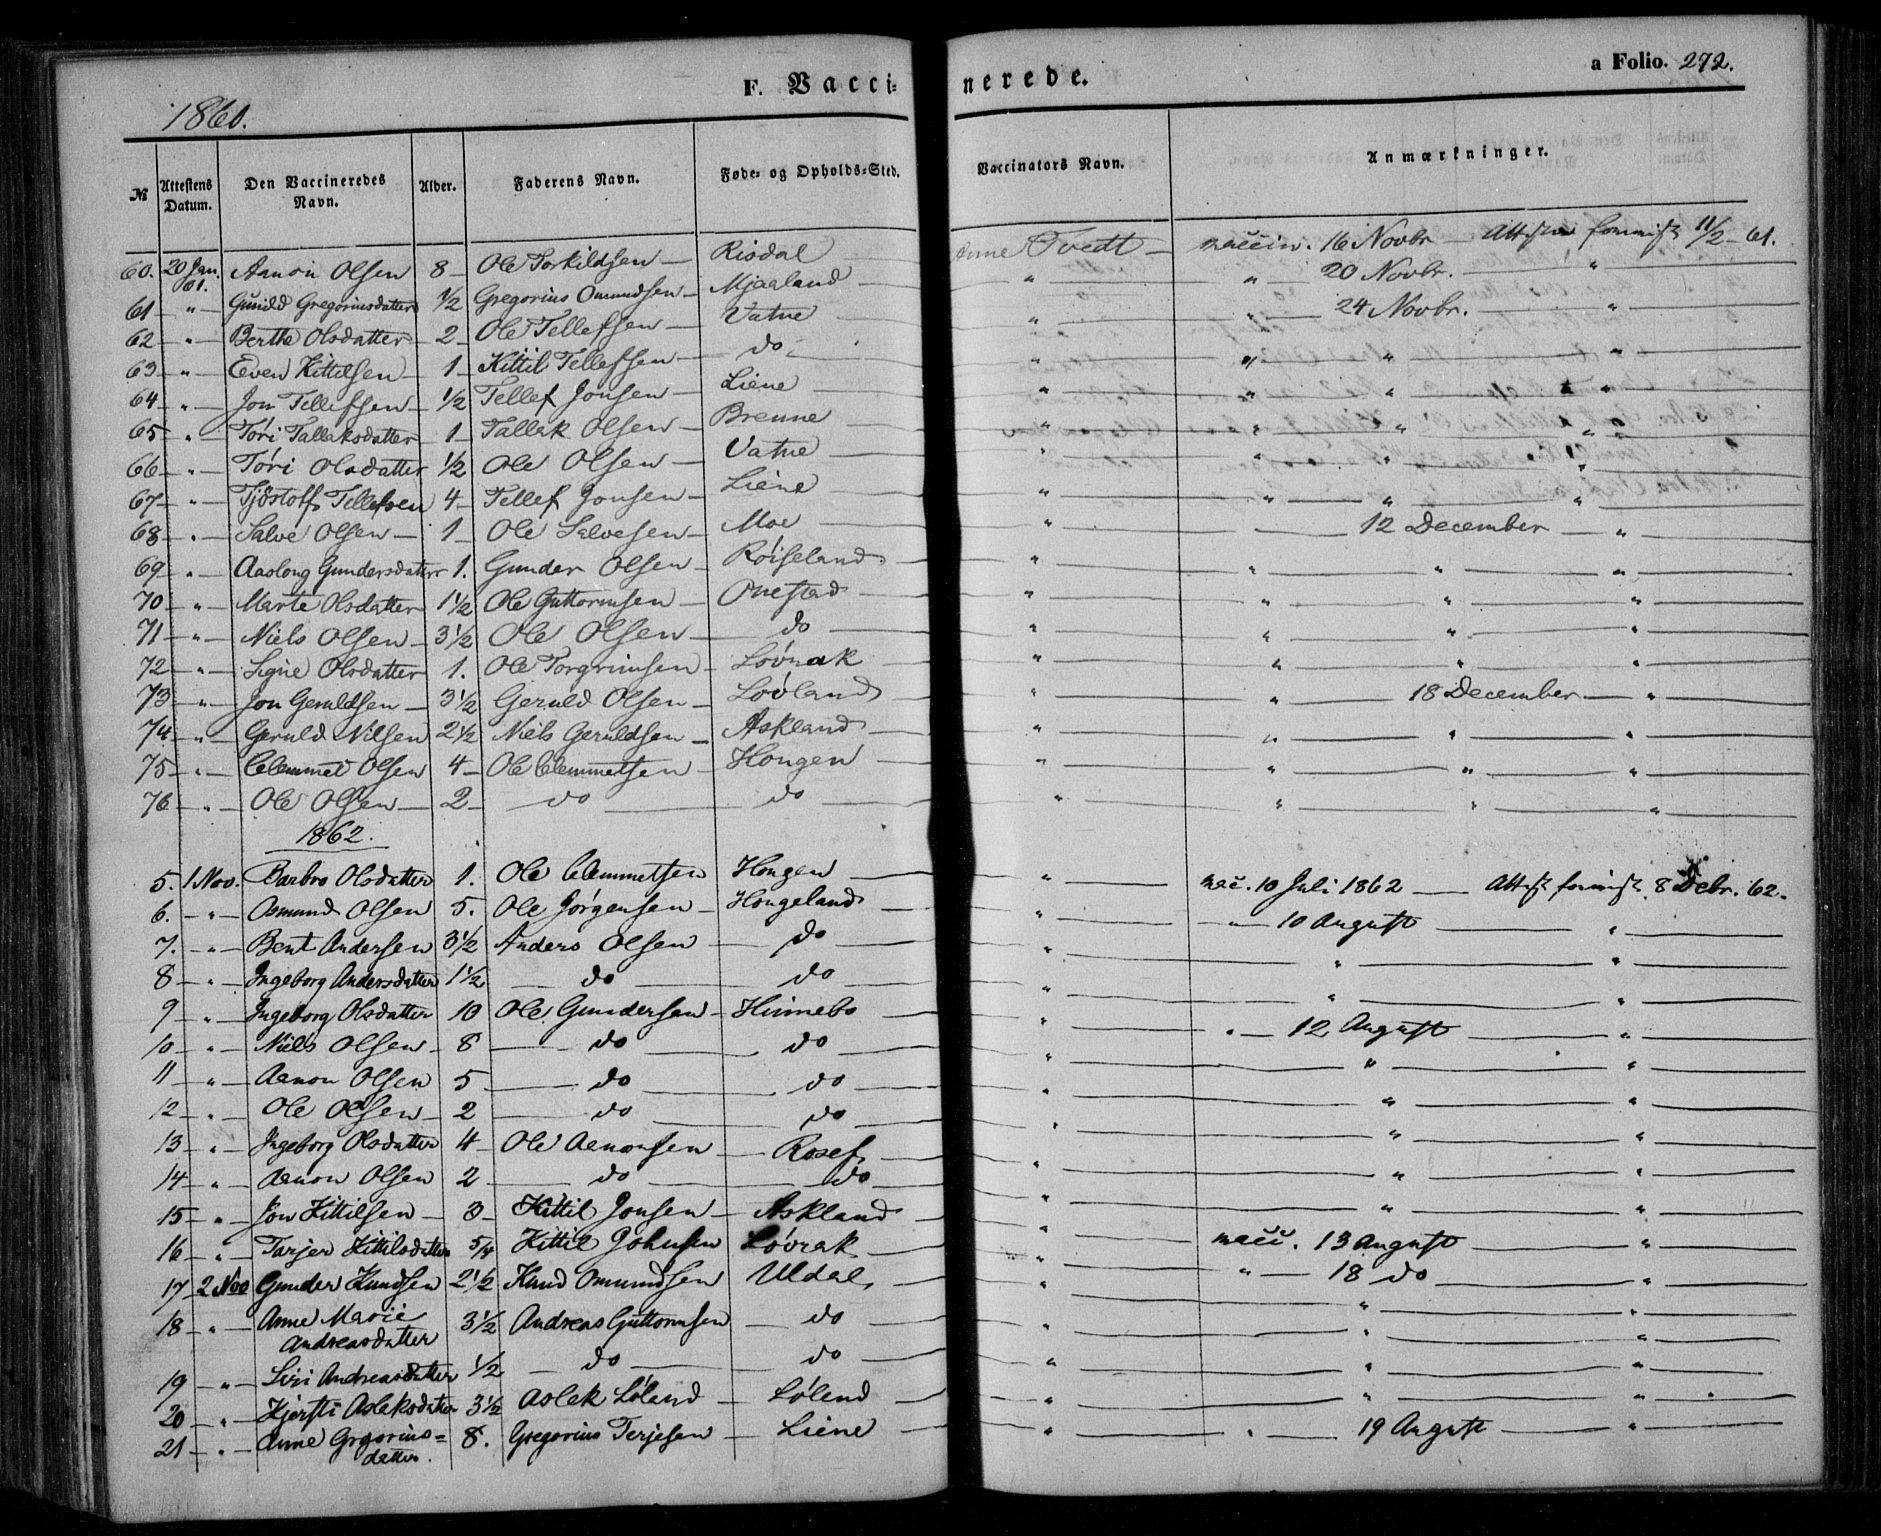 F. Vacci- nerede. a Folio. 272.
1860.
№ Attestens Datum. Den Vaccineredes Navn. Alder. Faderens Navn. Føde- og Opholds-Sted. Vaccinators Navn. Anmærkninger.
60. 20 Jan. 61. Aanon Olsen 8 Ole Torkildsen Risdal Anne Tvedt vaccin. 16 Novbr. 11/2 61.
61 " Gunild Gregoriusdatter 1/2 Gregorius Omundsen Mjaaland " " 20 Novbr. "
62 " Berthe Olsdatter 2 Ole Tellefsen Vatne " " 24 Novbr. "
63 " Even Kittilsen 1 Kittil Tellefsen do " " " "
64 " Jon Tellefsen 1/2 Tellef Jonsen Liene " " " "
65 " Tøri Tallaksdatter 1 Tallak Olsen Brenne " " " "
66 " Tøri Olsdatter 1/2 Ole Olsen Vatne " " " "
67 " Tjøstolf Tellefsen 4 Tellef Jonsen Liene " " " "
68 " Salve Olsen 1 Ole Salvesen Moe " 12 December "
69 " Aaslong Gundersdatter 1. Gunder Olsen Røiseland " " " "
70 " Marte Olsdatter 1 1/2 Ole Guttormsen Onestad " " " "
71 " Niels Olsen 3 1/2 Ole Olsen do " " " "
72 " Signe Olsdatter 1. Ole Torgrimsen Løvrak " " " "
73 " Jon Geruldsen 3 1/2 Geruld Olsen Løvland " " 18 December "
74 " Geruld Nilsen 2 1/2 Niels Geruldsen Askland " " " "
75 " Clemmet Olsen 4 Ole Clemmetsen Hongen " " " "
76 " Ole Olsen 2 do do " " " "
1862.
5. 1 Nov. Barbro Olsdatter 1. Ole Clemmetsen Hongen " vac. 10 Juli 1862 8 Debr. 62.
6. " Osmund Olsen 5. Ole Jørgensen Hongeland " " 10 August "
7. " Bent Andersen 3 1/2 Anders Olsen do " " "
8 " Ingeborg Andersdatter 1 1/2 do do " " "
9 " Ingeborg Olsdatter 10 Ole Gundersen Hinnebo " " 12 August "
10 " Niels Olsen 8 do do " " "
11 " Aanon Olsen 5 do do " " "
12 " Ole Olsen 2 do do " " "
13 " Ingeborg Olsdatter 4 Ole Aanonsen Rosef " " "
14 " Aanon Olsen 2 do do " " "
15 " Jon Kittilsen 3 Kittil Jonsen Askland " " "
16 " Tarjer Kittilsdatter 5/4 Kittil Johnsen Løvrak " vacc. 13 August "
17 2 Nov Gunder Knudsen 2 1/2 Knud Omundsen Uldal " " 18 do "
18 " Anne Marie Andreasdatter 3 1/2 Andreas Guttormsen do " " "
19 " Siri Andreasdatter 1/2 do do " " "
20 " Kjersti Aslaksdatter 3 1/2 Aslak Løland Lølend " " "
21 " Anne Grgorius=datter. 8. Gregorius Terjesen Liene " " 19 August "